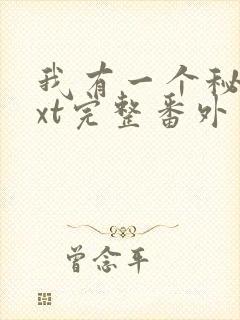 我有一个秘
xt完整番外
曾念平